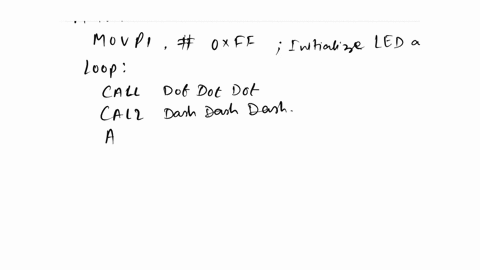 MOV P1, # 0xFF ; Initialize LED a
Loop:
CALL Dot Dot Dot
CALL Dash Dash Dash.
A